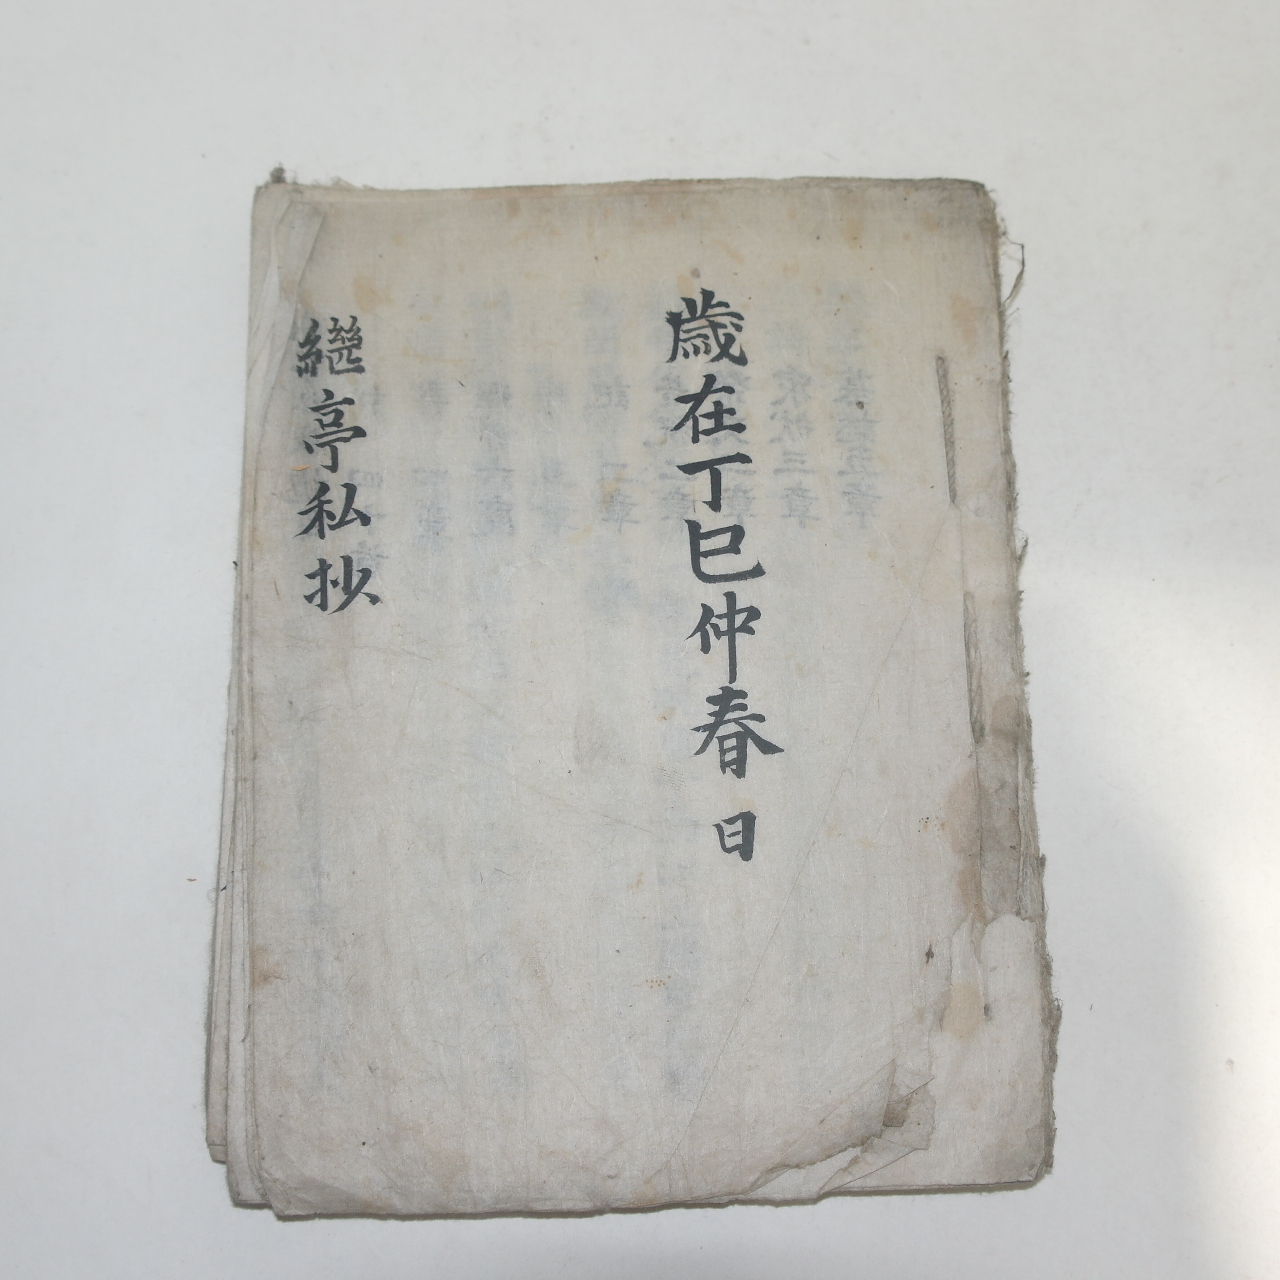 歲在丁巳仲春 日
繼亭私抄